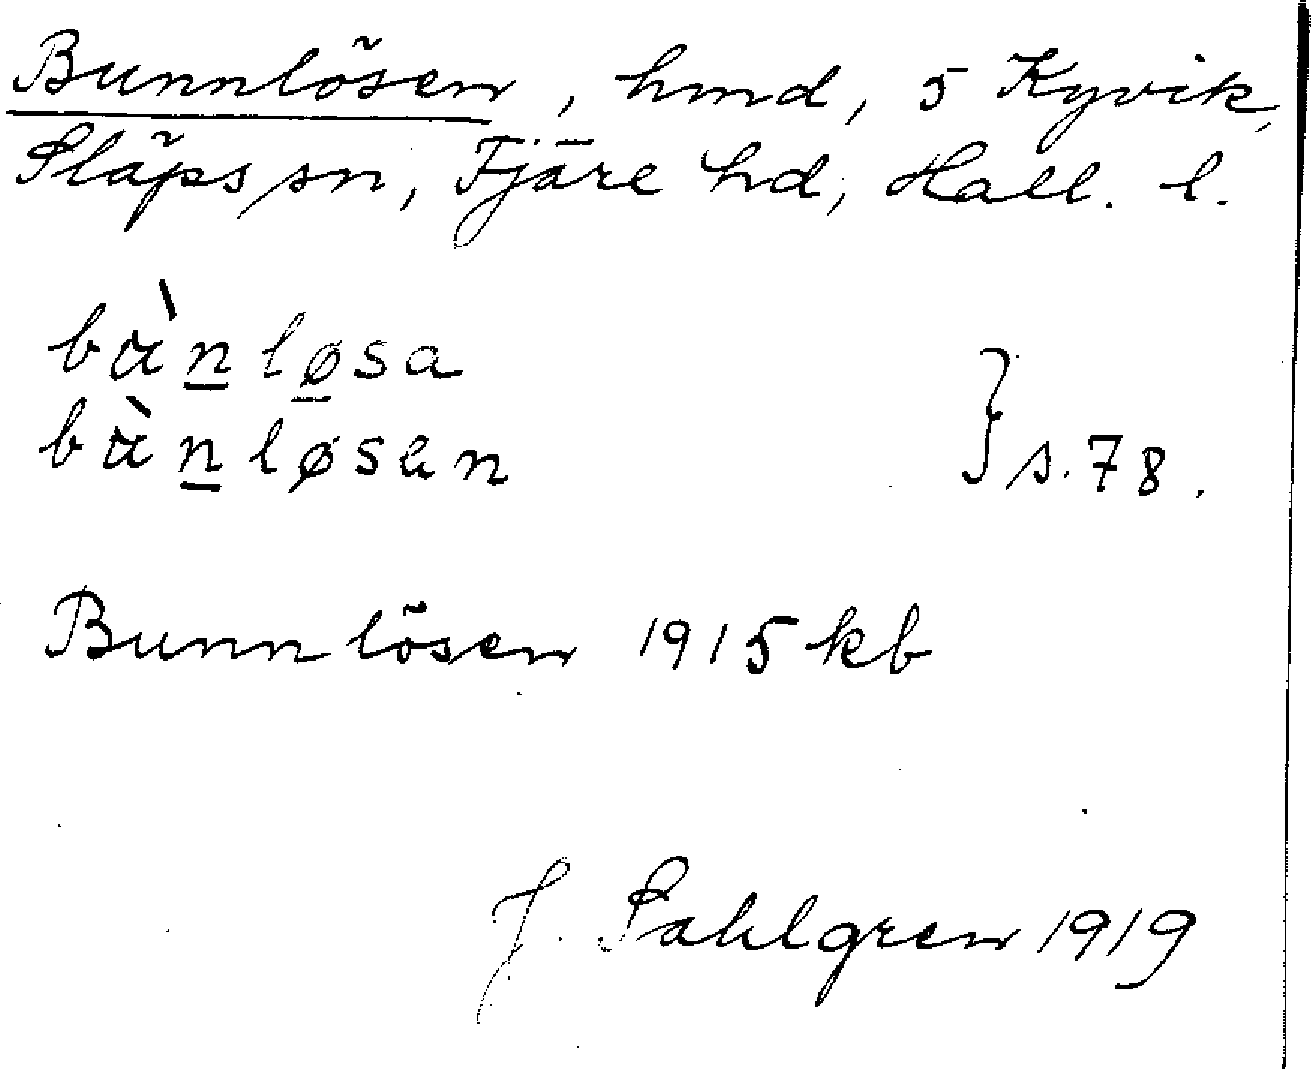 Bunnlösen, hmd, 5 Kyvik,
Släps sn, Fjäre hd, Hall. l.
bànløsa
bànløsen } s. 78.
Bunnlösen 1915 kb
J. Sahlgren 1919